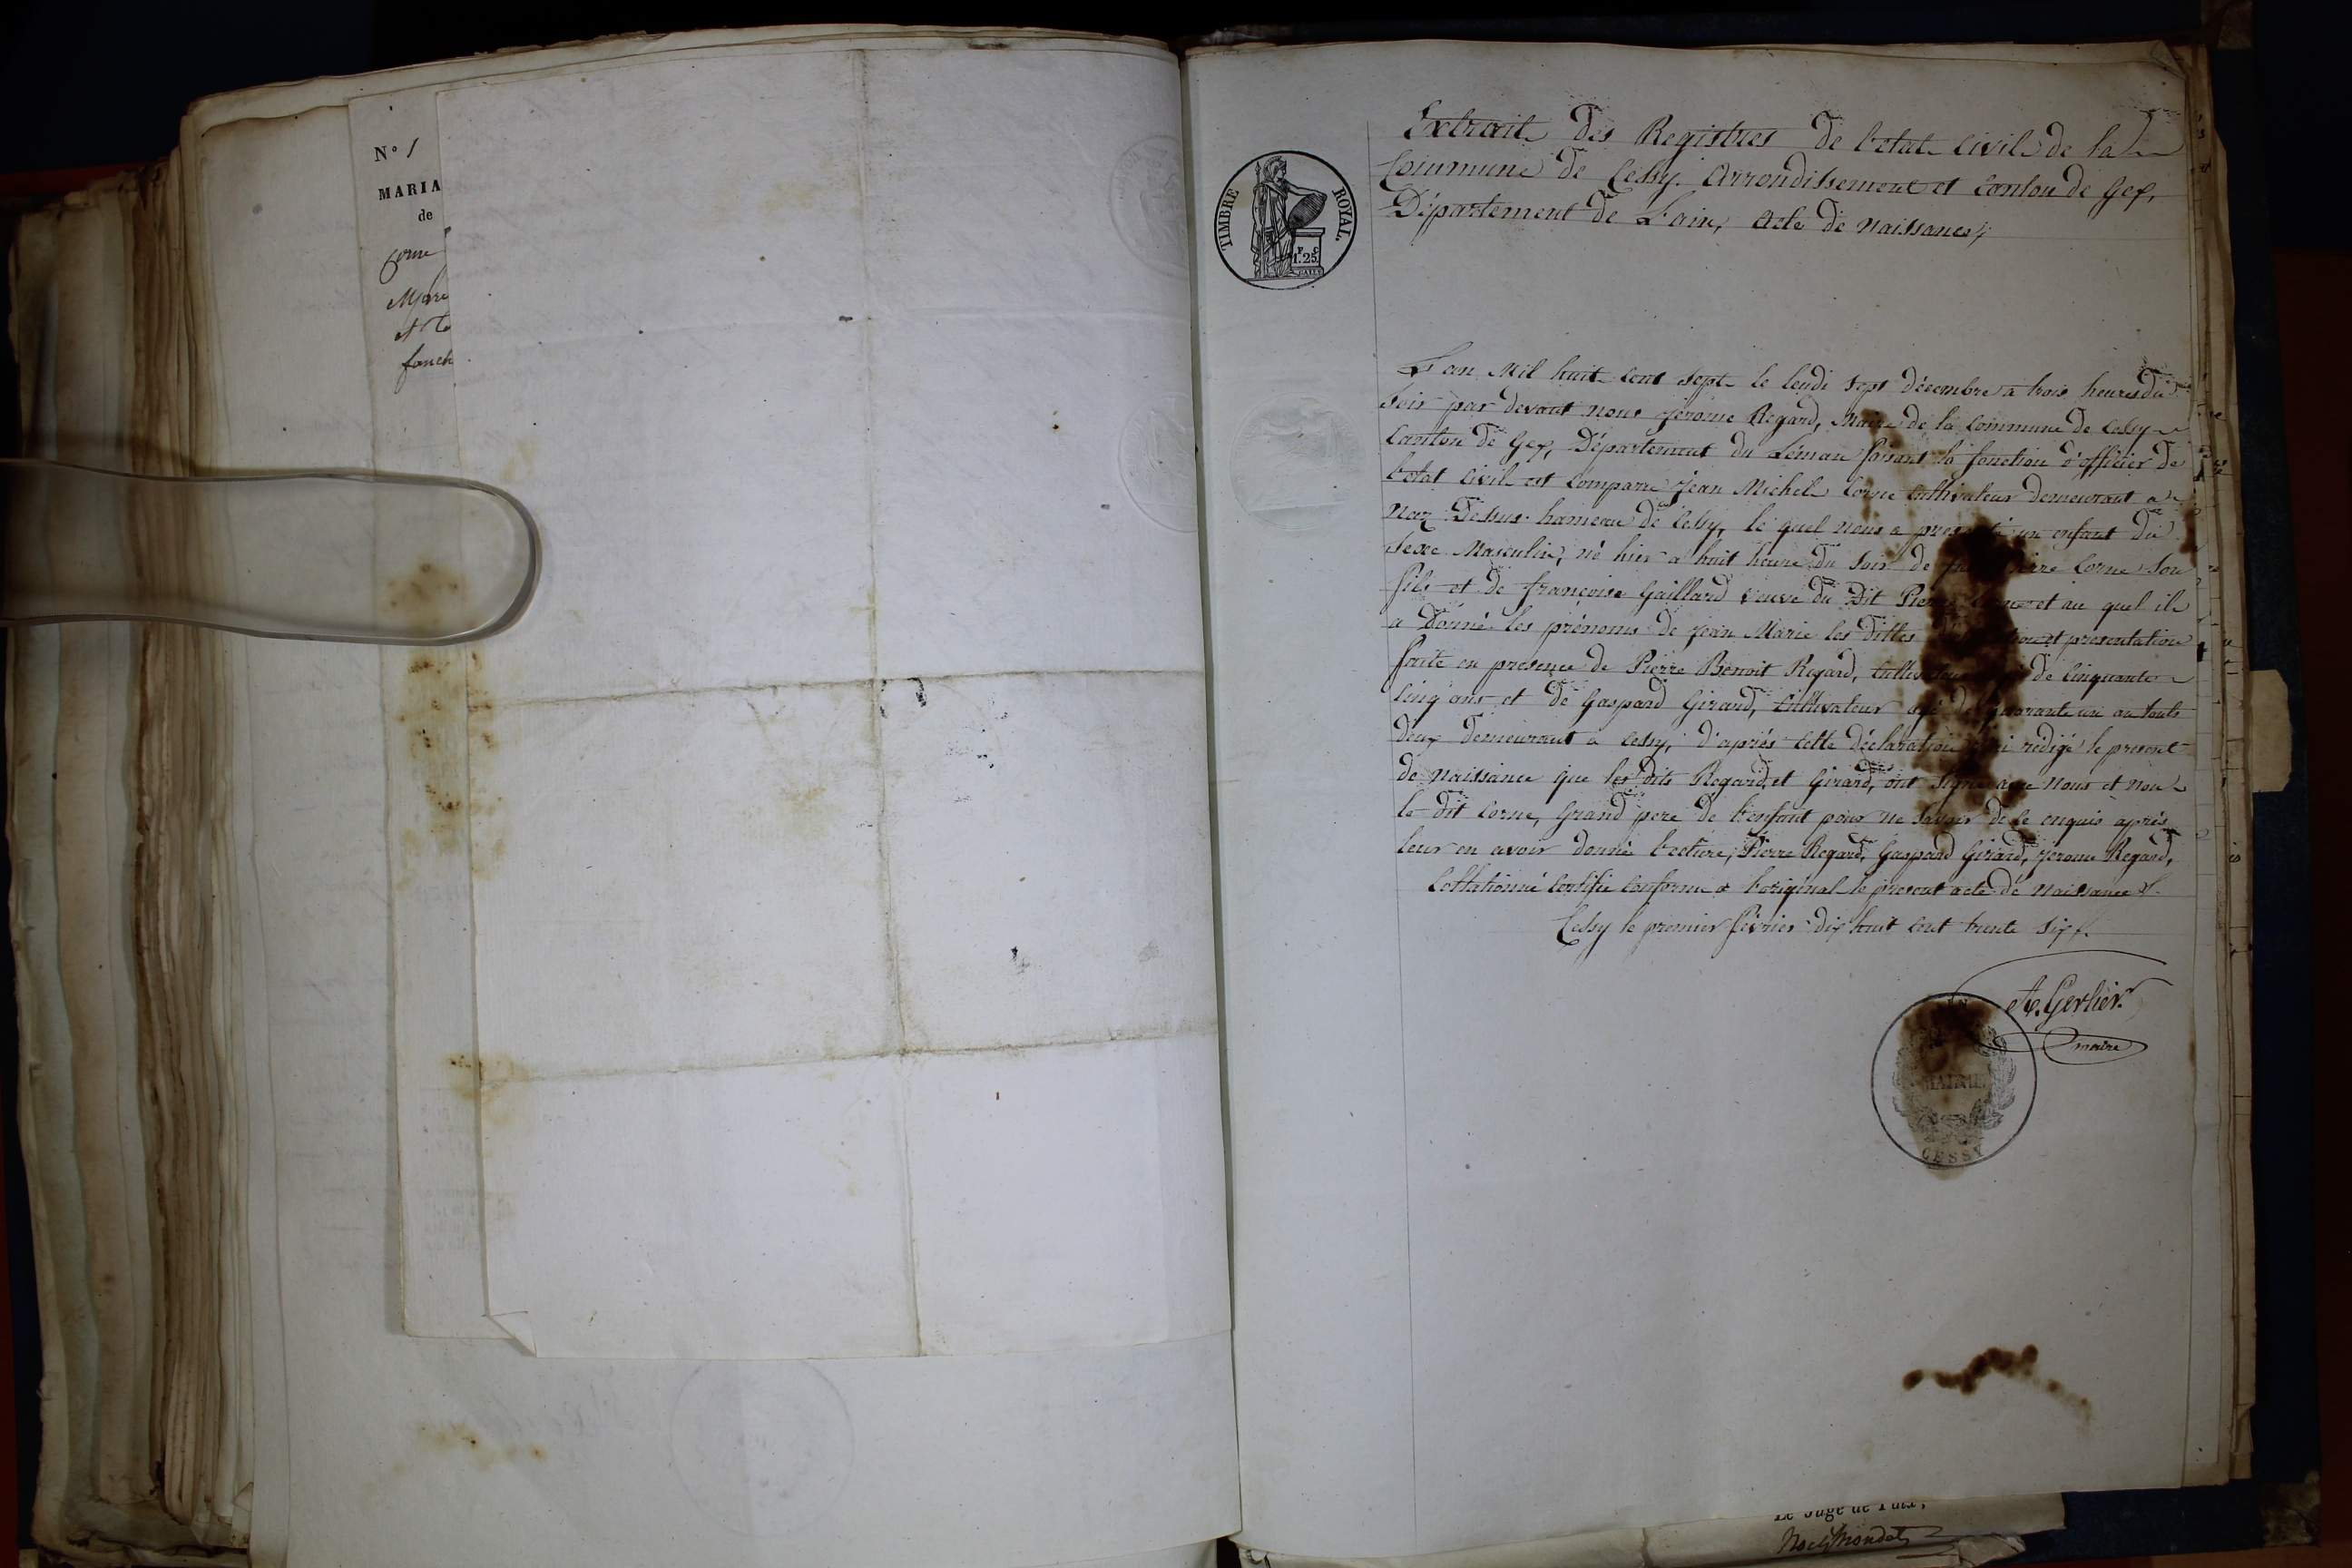 N° 1
MARIA
de
Corne
Marie
et
Extrait des Registres de l'etat Civil de la
Commune de Cessy. Arrondissement et Canton de Gex,
Département de L'ain, acte de naissance,
TIMBRE ROYAL.
F. C.
1.25.
L'an Mil huit cent sept le lundi sept décembre a trois heures du
soir par devant nous Jérôme Regard, Maire de la Commune de Cessy
Canton de Gex, Département du Léman faisant la fonction d'officier de
l'etat Civil est comparu Jean Michel Corne Cultivateur demeurant a
Naz-Dessus hameau de Cessy, le quel nous a presenté un enfant du
sexe Masculin, né hier a huit heure du soir de Pierre Corne son
fils et de françoise Gaillard veuve du Dit Pierre Corne et au quel il
a donné les prénoms de Jean Marie les dittes et presentation
faite en presence de Pierre Benoit Regard, Cultivateur de Cinquante
Cinq ans et de Gaspard Girard, Cultivateur agé de quarante un an touts
deux demeurant a Cessy, d'après cette déclaration j'ai redigé le present
de naissance que les dits Regard, et Girard, ont signé avec nous et non
le dit Corne, Grand pere de l'enfant pour ne savoir de ce enquis après
leur en avoir donné lecture, Pierre Regard, Gaspard Girard, Jerome Regard,
Collationné certifié conforme a l'original le present acte de naissance
Cessy le premier février dix huit cent trente six.
A. Gerlier
maire
AIN
MAIRIE
CESSY
Le Juge de Paix,